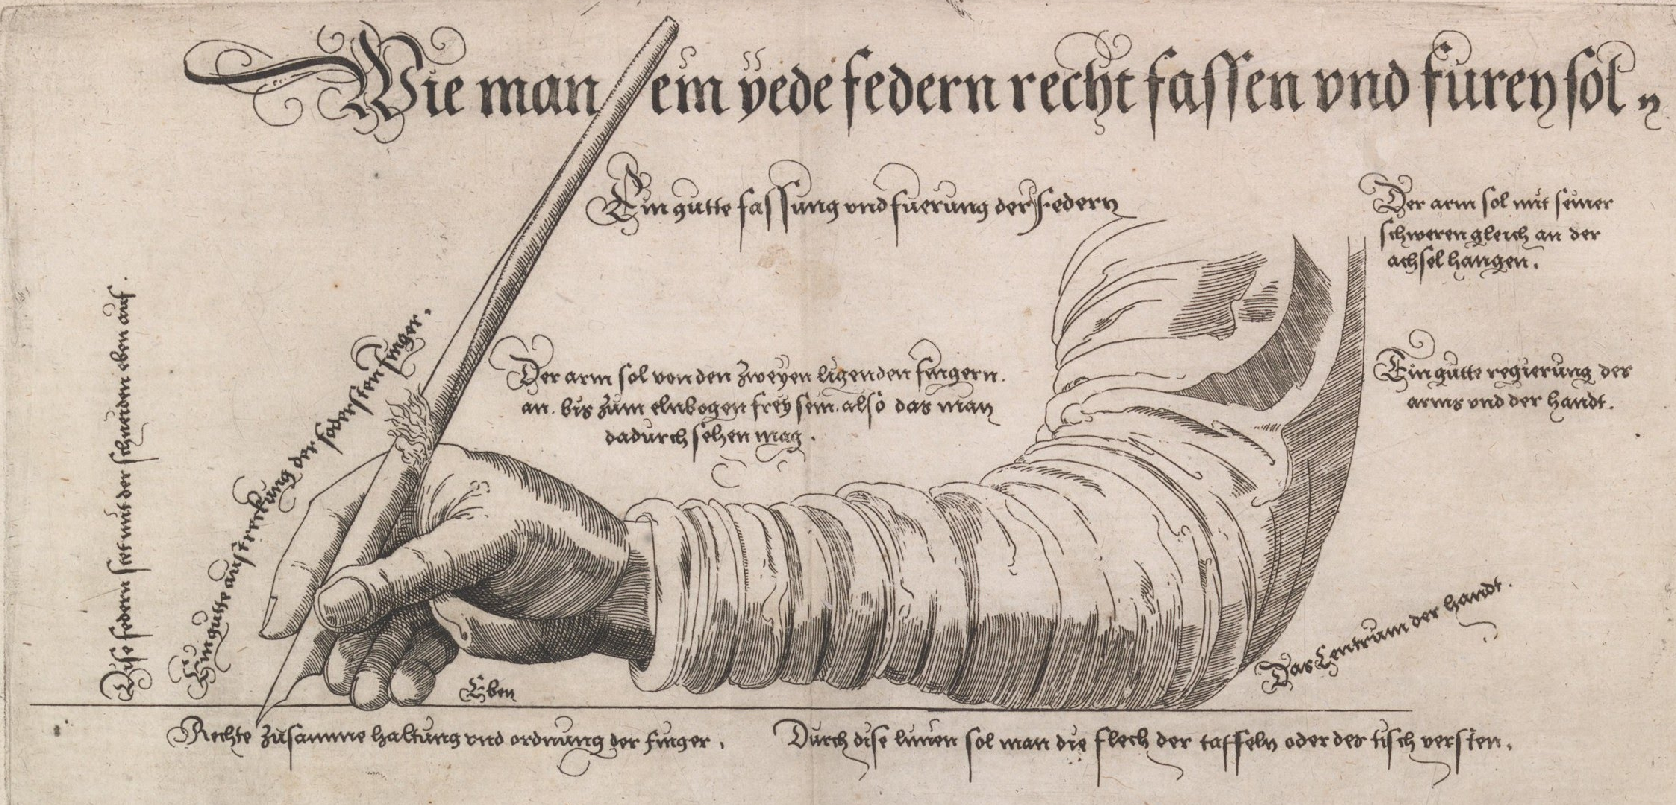 Wie man ein yede federn recht fassen vnd furen sol
Ein gutte fassung vnd fuerung der Federn
Der arm sol mit seiner
schweren gleich an der
achsel hangen.
Der arm sol von den zweyen ligenden fingern.
an. bis zum elnbogen frey sein. also das man
dadurch sehen mag.
Ein gutte regierung des
arms vnd der handt.
Dise federn stet mit der schneiden eben auf.
Ein gutte ausstreckung der fodersten finger.
Das Centrum der handt.
Eben
Rechte zusamme haltung vnd ordnung der finger.
Durch dise linien sol man die flech der taffeln oder des tisch versten.